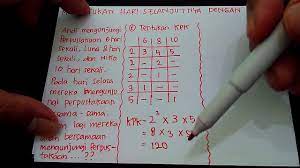 TUKAN HARI SELANJUTNYA DENGAN
Andi mengunjungi
Perpustakaan 6 hari
sekali, Luna 8 hari
sekali, dan Niko
10 hari sekali.
Pada hari selasa
mereka
perpustakaan
sama-sama.
lagi mereka
bersamaan
mengunjungi Perpus-
takaan ....??
① Tentukan KPK
6 8 10
2 3 4 5
5 - - 1
KPK = 2³ × 3 × 5
= 8 × 3 × 5
= 120